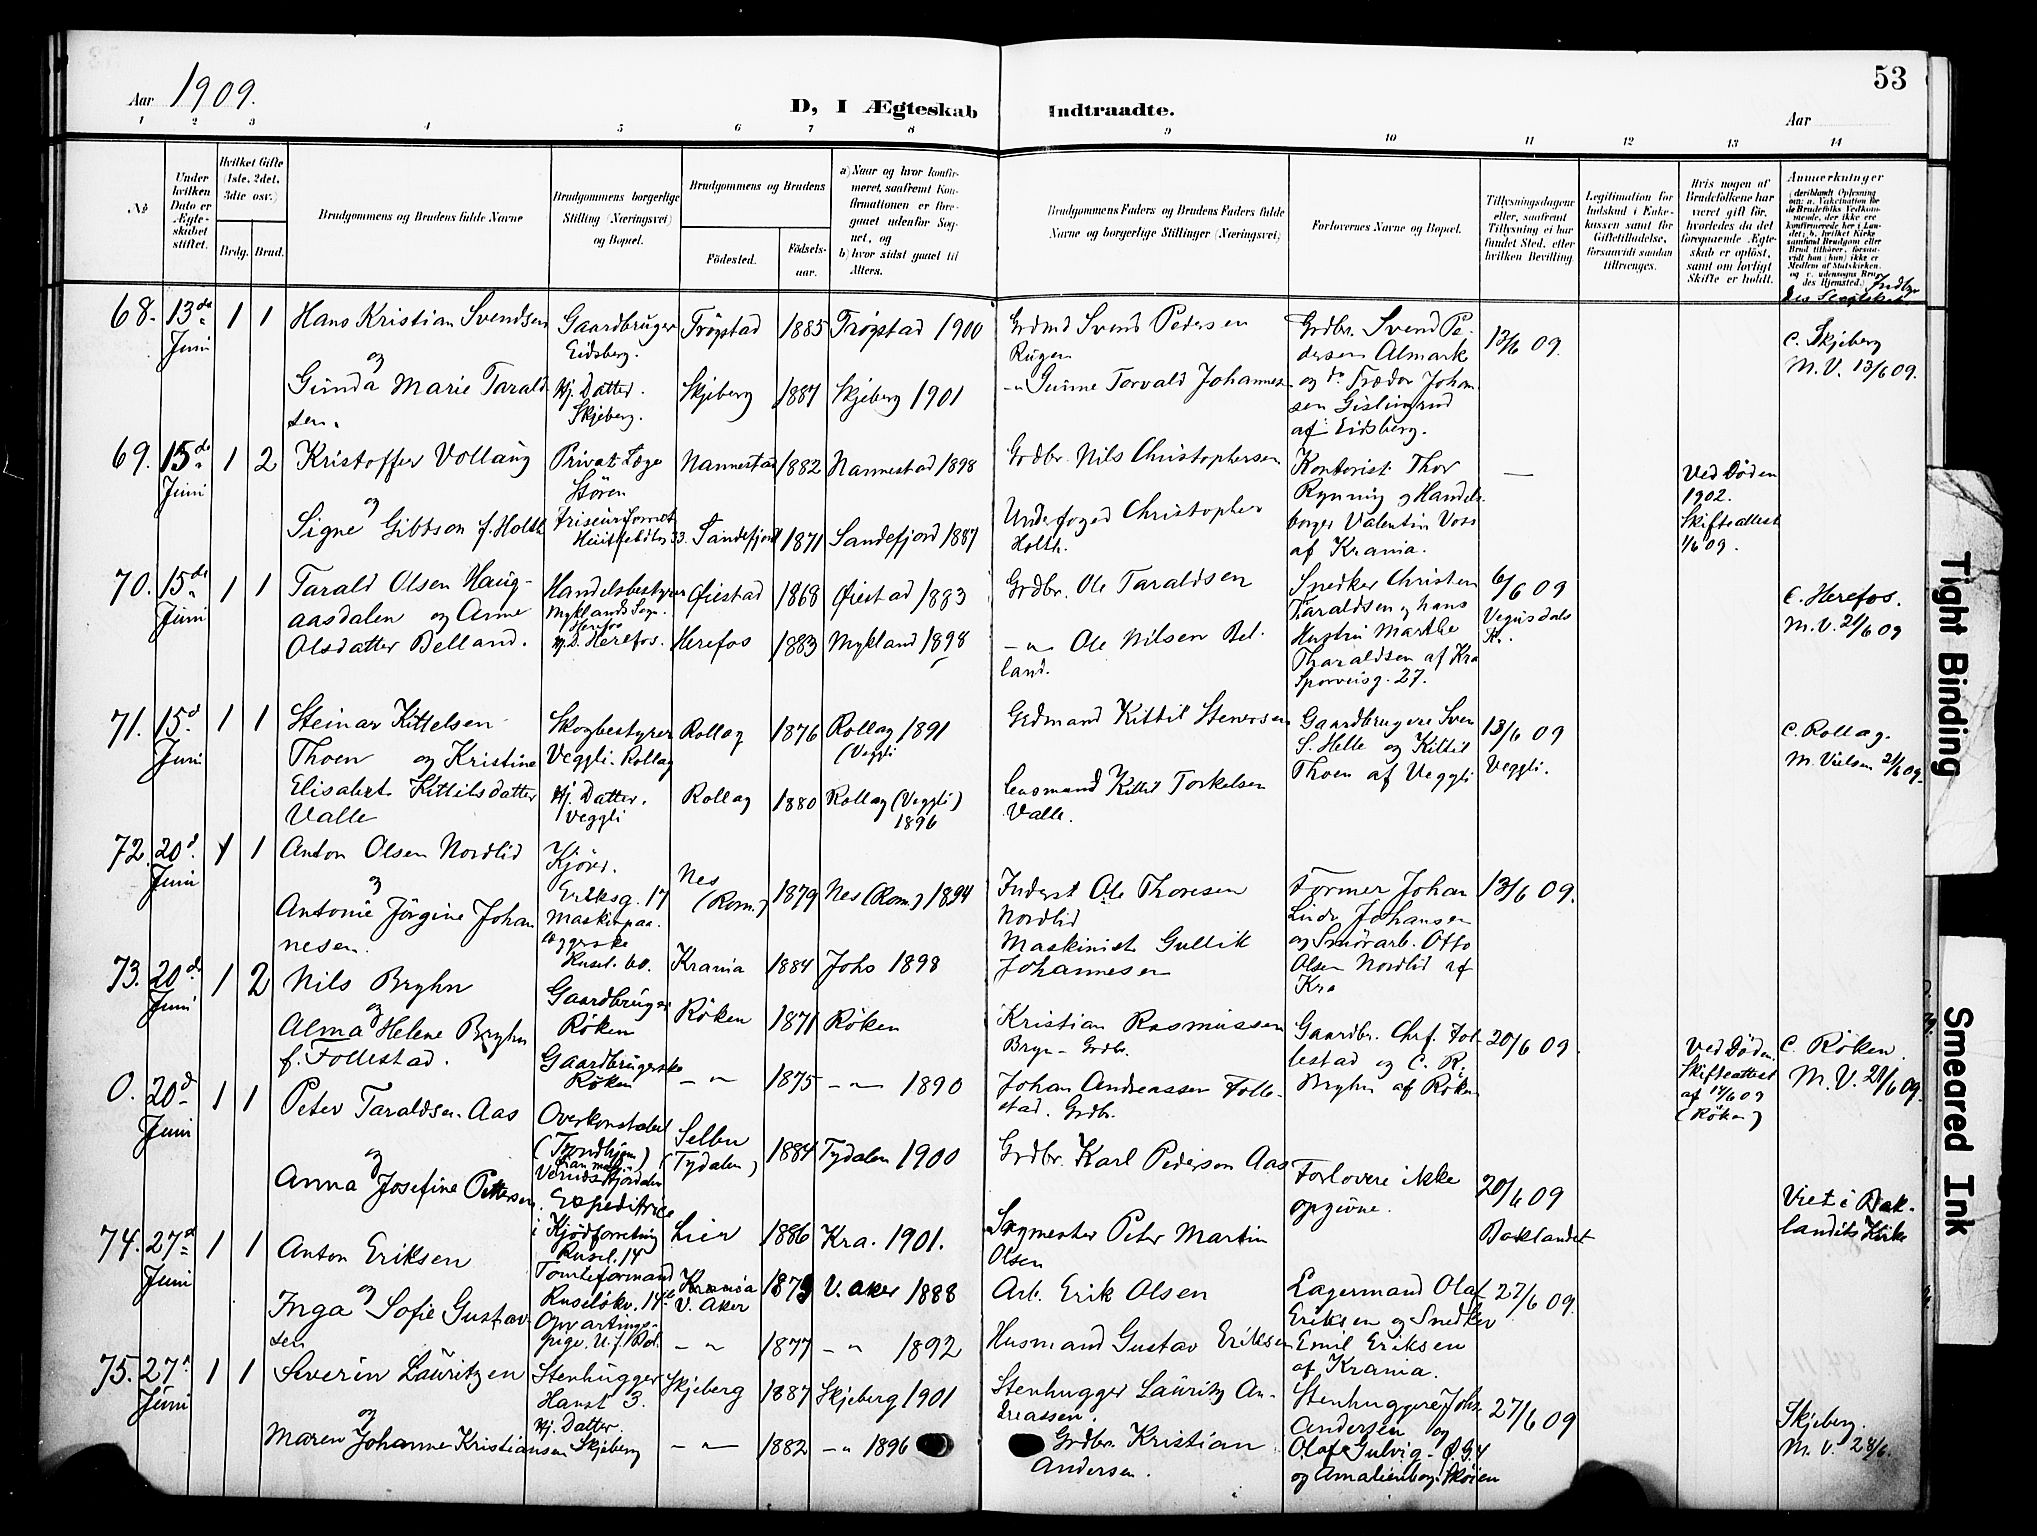 53
Aar 1909.
D, I Ægteskab Indtraadte.
Aar
1 2 3 4 5 6 7 8 9 10 11 12 13 14
No
Under hvilken Dato er Ægteskabet stiftet.
Hvilket Gifte (1ste, 2det, 3die osv.)
Brdg. Brud.
Brudgommens og Brudens fulde Navne
Brudgommens borgerlige Stilling (Næringsvei) og Bopæl.
Brudgommens og Brudens
Fødested.
Fødselsaar.
a) Naar og hvor konfirmeret, saafremt Konfirmationen er foregaaet udenfor Sognet, og
b) hvor sidst gaaet til Alters.
Brudgommens Faders og Brudens Faders fulde Navne og borgerlige Stillinger (Næringsvei)
Forlovernes Navne og Bopæl.
Tillysningsdagene eller, saafremt Tillysning ei har fundet Sted, efter hvilken Bevilling
Legitimation for Indskud i Enkekassen samt for Giftetilladelse, forsaavidt saadan tiltrænges.
Hvis nogen af Brudefolkene har været gift før, hvorledes da det foregaaende Ægteskab er opløst, samt om lovligt Skifte er holdt.
Anmærkninger
68. 13de Juni 1 1
Hans Kristian Svendsen
og
Gunda Marie Taraldsen.
Gaardbruger
Eidsberg.
Hj. Datter.
Skjeberg.
Trøgstad 1885 Trøgstad 1900
Skjeberg 1881 Skjeberg 1901
Grdmd Svend Pedersen
Grdbr. Svend Pedersen Almark
af Eidsberg.
13/6 09.
C. Skjeberg
M. V. 13/6 09.
69. 15de Juni 1 2
Kristoffer Vollaug
og
Signe Gibbson f. Holth
Privat Læge
Støren
Nannestad 1882 Nannestad 1898
Sandefjord 1871 Sandefjord 1887
Grdbr. Nils Christophersen
Underfoged Christopher
Holth.
Kontorist Thor
Rynning og Handels-
borger Valentin Voss
af Krania.
—
Ved Døden
1902.
Skifteattest
1/6 09.
70. 15de Juni 1 1
Tarald Olsen Haug-
aasdalen og Anne
Olsdatter Belland.
Handelsbestyrer
Myklands Sogn.
Herefos
Hj. D. Herefos.
Øiestad 1868 Øiestad 1883
Herefos 1883 Mykland 1898
Grdbr. Ole Taraldsen
—"— Ole Nilsen Bel-
land.
Snedker Christen
Taraldsen og hans
Hustru Marthe
Tharaldsen af Kra
Sporveisg. 27.
6/6 09
Vegusdals
K.
C. Herefos.
M. V. 21/6 09
71. 15d Juni 1 1
Steinar Kittelsen
Thoen og Kristine
Elisabet Kittilsdatter
Valle
Skogbestyrer
Veggli. Rollag
Hj. Datter.
Veggli
Rollag 1876 Rollag 1891
(Veggli
Rollag 1880 Rollag (Veggli)
1896
Grdmand Kittil Stenersen
Lensmand Kittil Torkelsen
Valle.
Gaardbrugere Sven
S. Helle og Kittil
Thoen af Veggli
13/6 09
Veggli.
C. Rollag.
M. Vielsen 21/6 09.
72. 20d. Juni 1 1
Anton Olsen Nordlid
og
Antonie Jørgine Johan
nesen.
Kjører.
Eriksg. 17
Rusel. 60.
Nes
(Rom.) 1879 Nes (Rom.) 1894
Krania 1884 Johs 1898
Inderst Ole Thoresen
Nordlid
Maskinist Gullik
Johannesen
Former Johan
Johansen
og Smørarb. Otto
Olsen Nordlid af
Kra
13/6 09.
73. 20de Juni 1 2
Nils Bryhn
og
Alma Helene Bryhn
f. Follestad.
Gaardbruger
Røken
Gaardbrugerske
Røken
Røken 1871 Røken
—"— 1875 —"— 1890
Kristian Rasmussen
Bryn - Grdbr.
Johan Andreassen Folle-
stad. Grdbr.
Gaardbr. Chr. Fol-
lestad og C. R.
Bryhn af Røken
20/6 09
Ved Døden.
Skifteattest
af 14/6 09
(Røken)
C. Røken.
M. V. 21/6 09.
0. 20d Juni 1 1
Peter Taraldsen Aas
og
Anna Josefine Pettersen
Overkonstabel
(Trondhjem)
Expeditrice
i Kjødforretning
Rusel. 14
Selbu
(Tydalen) 1884 Tydalen 1900
Lier 1886 Kra. 1901.
Grdbr. Karl Pederson Aas
Sagmester Peter Martin
Olsen
Forlovere ikke
opgivne.
20/6 09
Baklandet
Viet i Bak-
landets Kirke
74. 27d Juni 1 1
Anton Eriksen
og
Inga Sofie Gustav
sen
Tomteformand
Ruseløkv. 14
Opvartnings-
pige.
Krania
V. Aker 1873 V. Aker 1888
—"— 1877 —"— 1892
Arb. Erik Olsen
Husmand Gustav Eriksen
Lagermand Olaf
Eriksen og Snedker
Emil Eriksen
af Krania.
27/6 09.
75. 27d Juni 1 1
Severin Lauritzen
og
Maren Johanne Kristiansen
Stenhugger
Hanst 3.
Hj. Datter
Skjeberg
Skjeberg 1887 Skjeberg 1901
—"— 1882 —"— 1896
Stenhugger Lauritz An-
dreassen.
Grdbr. Kristian
Andersen.
Stenhuggere Johs.
Andersen og
Olaf Gulvig
og Amalienborg Skøien
27/6 09
Skjeberg.
M. V. 28/6.
Tight Binding
Smeared Ink